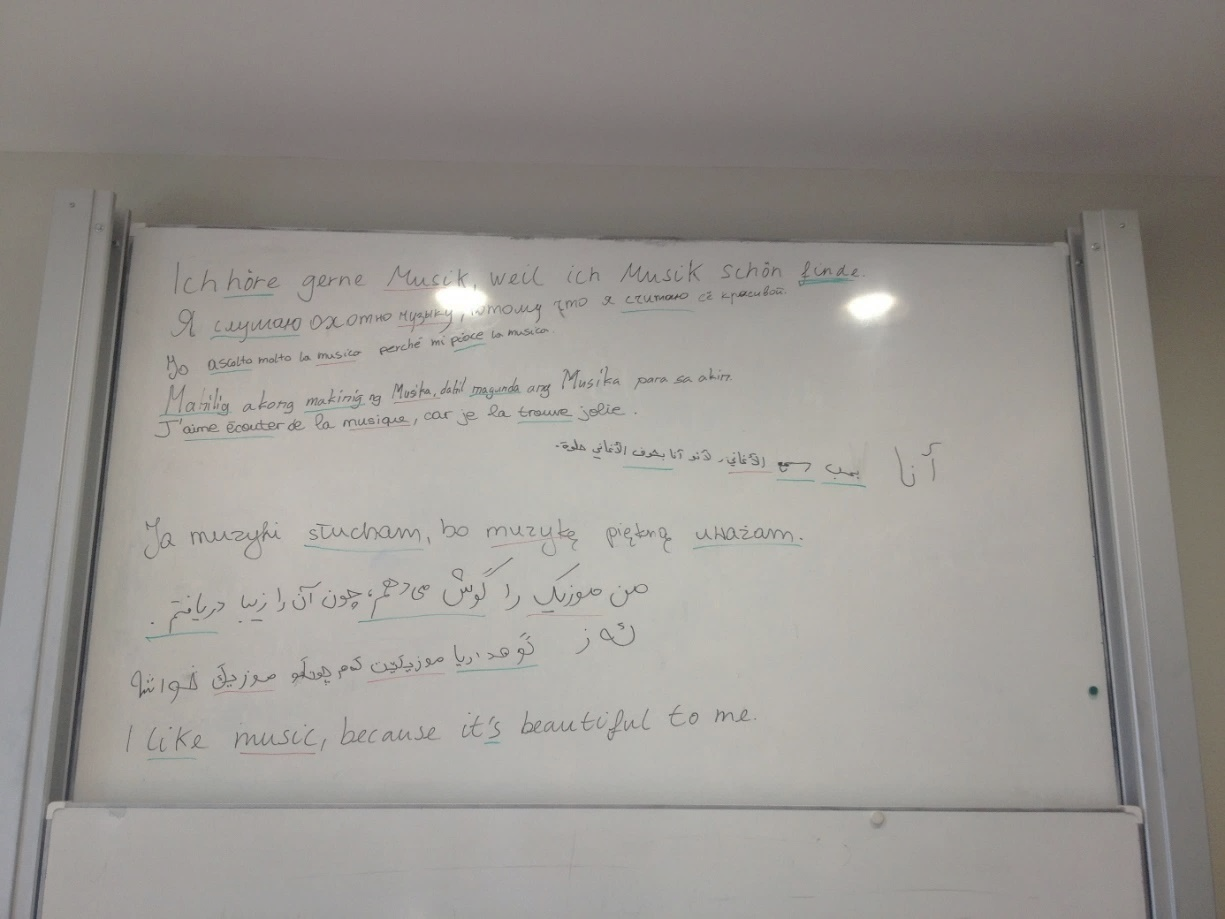 Ich höre gerne Musik, weil ich Musik schön finde.
Я слушаю охотно музыку, потому что я считаю её красивой.
Jo ascolto molto la musica perché mi piace la musica.
Mahilig akong makinig ng Musika, dahil maganda ang Musika para sa akin.
J'aime écouter de la musique, car je la trouve jolie.
أنا بحب الأغاني، لأنو أنا بعرف الأغاني حلوة.
Ja muzyki słucham, bo muzykę piękną uważam.
من موزیک را گوش می‌دهم، چون آن را زیبا دریافتم.
ئەز موزیک خواشە
I like music, because it's beautiful to me.